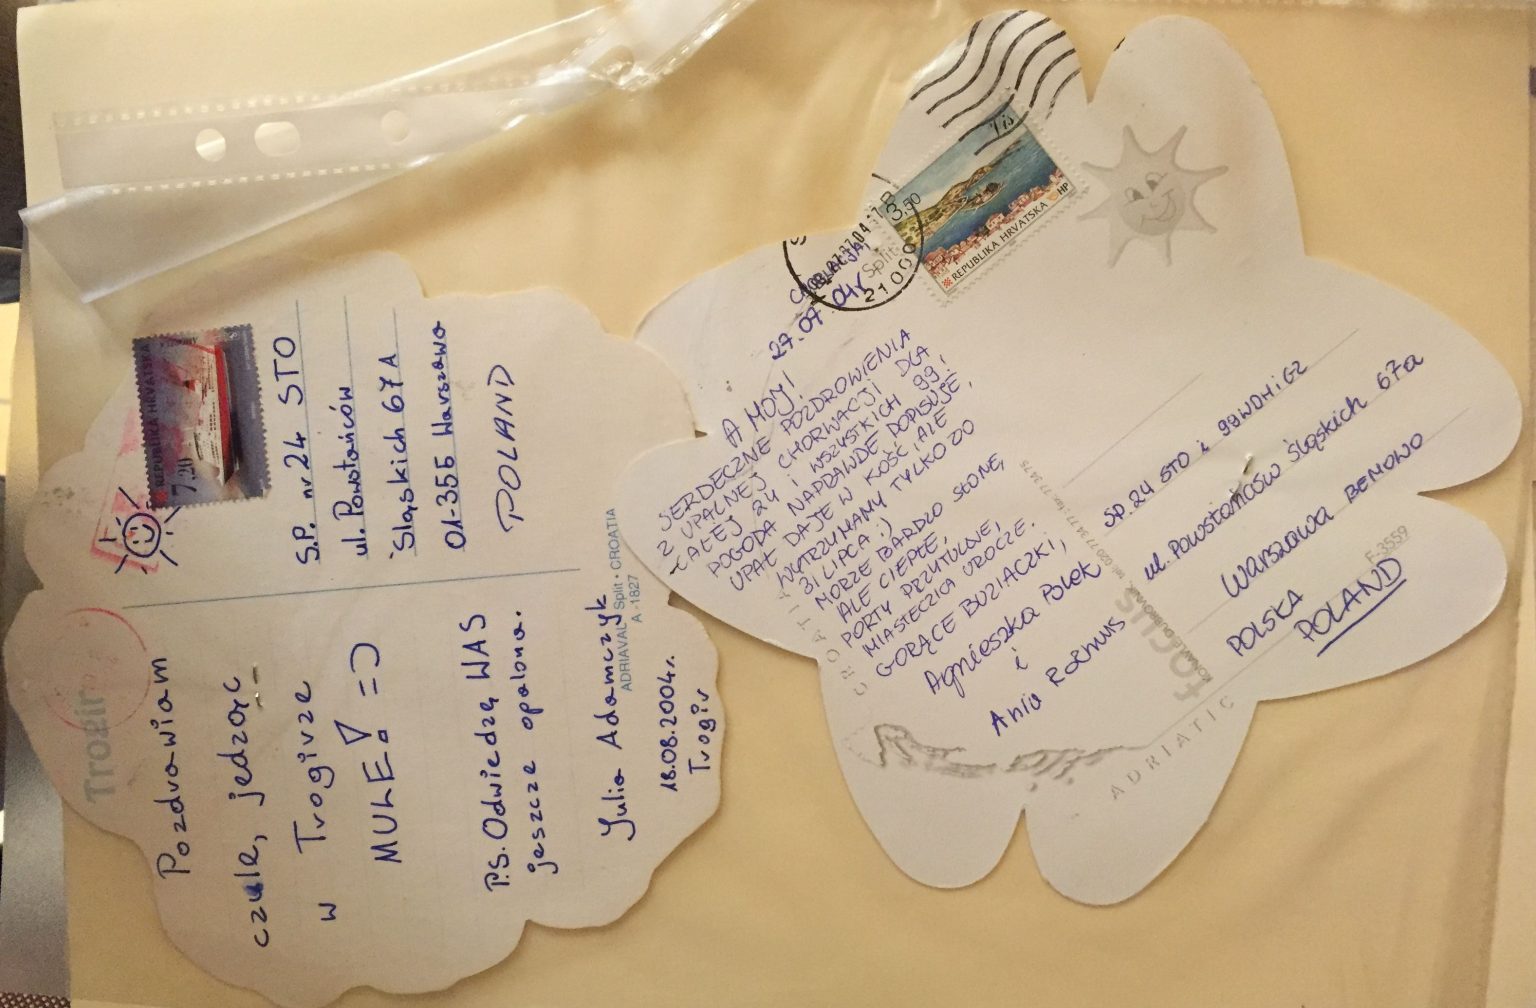 Trogir
Pozdrawiam
czule, jedząc
w Trogirze
MULE! =)
P.S. Odwiedzą WAS
jeszcze opalona.
Julia Adamczyk
18.08.2004r.
Trogir
ADRIAVAL Split • CROATIA
A -1827
REPUBLIKA HRVATSKA
7.20
S.P. nr 24 STO
ul. Powstańców
Śląskich 67A
01-355 Warszawa
POLAND
27.07.04r
AHOJ!
SERDECZNE POZDROWIENIA
Z UPALNEJ CHORWACJI DLA
CAŁEJ 24 i WSZYSTKICH 99!
POGODA NAPRAWDĘ DOPISUJE,
UPAŁ DAJE W KOŚĆ, ALE
WYTRZYMAMY TYLKO DO
31 LIPCA :)
MORZE BARDZO SŁONE,
ALE CIEPŁE,
PORTY PRZYTULNE,
MIASTECZKA UROCZE.
GORĄCE BUZIACZKI,
Agnieszka Polek
i
Ania
CROATIA
ADRIATIC
focus
F-3559
Vis
3,50
REPUBLIKA HRVATSKA
HP
Split
21000
SP. 24 STO i 99WDHiGZ
ul. Powstańców Śląskich 67a
Warszawa BEMOWO
POLSKA
POLAND